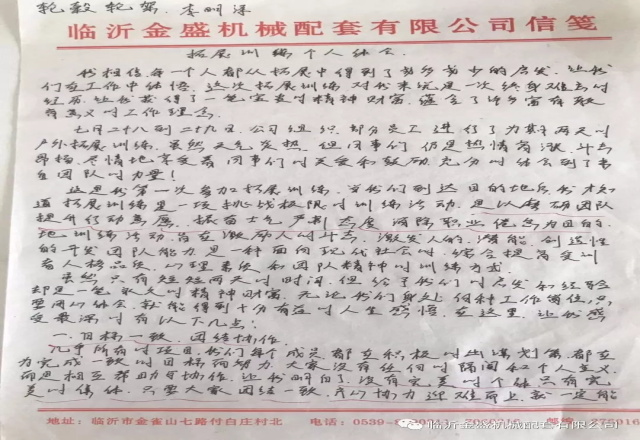 轮毂轮驾 李明深
临沂金盛机械配套有限公司信笺
拓展训练个人体会
我相信每一个人都从拓展中得到了或多或少的启发,让我
们在工作中体悟。这次拓展训练对我来说是一次终身难忘的
经历,让我获得了一笔宝贵的精神财富,蕴含了许多富有教
育意义的工作理念。
七月二十八到二十九日,公司组织部分员工进行了为期两天的
户外拓展训练,虽然天气炎热,但同事们仍是热情高涨,斗志
昂扬,尽情地享受着同事们的关爱和鼓励,充分的体会到了韦
尔团队的力量!
这是我第一次参加拓展训练,当我们到达目的地后我才知
道拓展训练是一项挑战极限的训练活动,是以磨砺团队
提升行动高度,振奋士气,严肃态度,消除职业倦怠为目的
地训练活动,旨在激励人的斗志,激发人的潜能,创造性
的开发团队能力是一种面向现代社会的,综合提高受训
者人格品质,心理素质和团队精神的训练方式。
虽然只有短短两天的时间,但给了我们的启发和经验
却是一笔永久的精神财富,无论我们身处何种工作岗位,只
要用心体会,就能得到十分有益的人生感悟,在这里,让我感
受最深的有以下几点:
一、目标一致,团结协作。
几乎所有的项目,我们每个成员都在积极的出谋划策,都在
为完成一致的目标而努力,大家没有任何的隔阂和个人主义,
而是相互帮助与协作,让我明白了,没有完美的个体只有完
美的集体,只要大家团结一致,齐心协力,迎难而上,就一定能
地址:临沂市金雀山七路付白庄村北 电话:0539-
临沂金盛机械配套有限公司